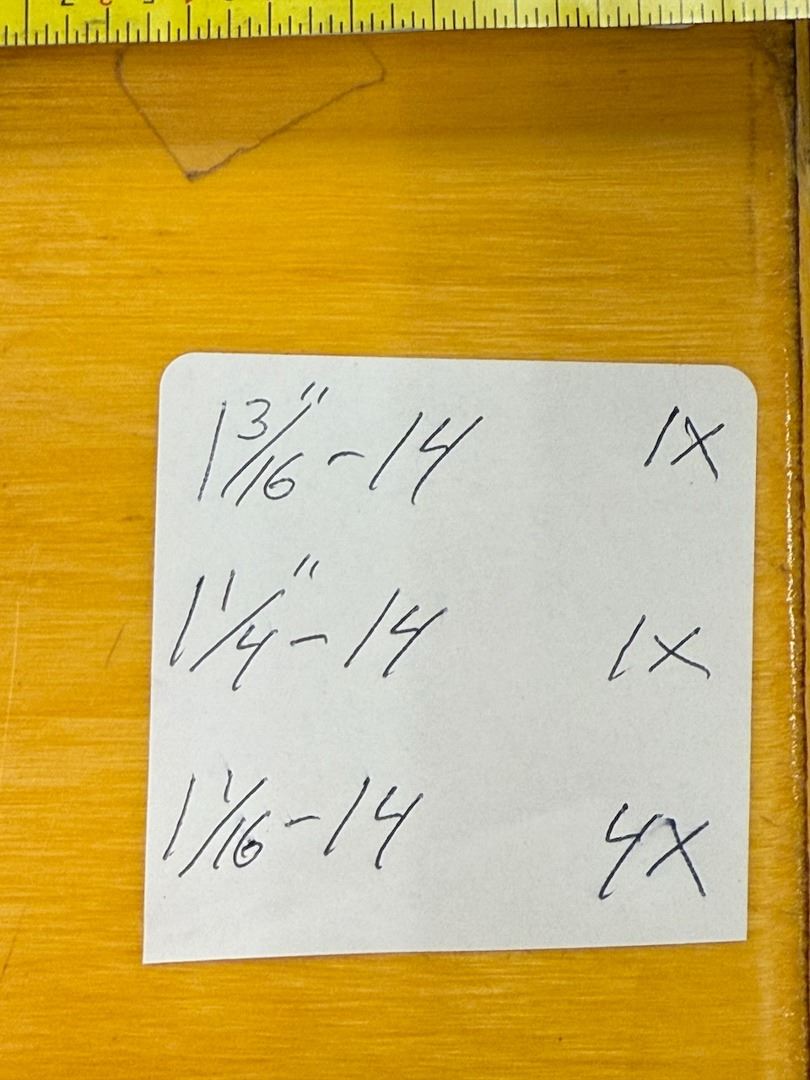 1 3/16" - 14 1X
1 1/4" - 14 1X
1 1/16 - 14 4X